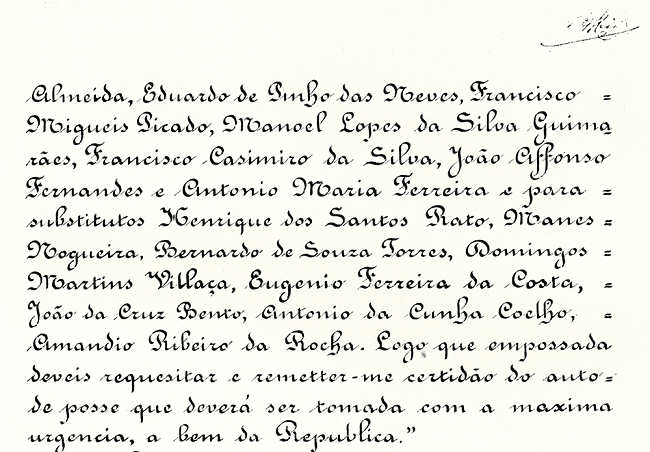 Almeida, Eduardo de Pinho das Neves, Francisco =
Migueis Picado, Manoel Lopes da Silva Guima
rães, Francisco Casimiro da Silva, João Affonso
Fernandes e Antonio Maria Ferreira e para =
substitutos Henrique dos Santos Rato, Manes=
Nogueira, Bernardo de Souza Torres, Domingos =
Martins Villaça, Eugenio Ferreira da Costa, =
João da Cruz Bento, Antonio da Cunha Coelho, =
Amandio Ribeiro da Rocha. Logo que empossada
deveis requesitar e remetter-me certidão do auto=
de posse que deverá ser tomada com a maxima
urgencia, a bem da Republica."